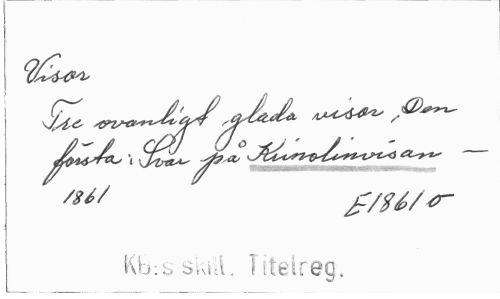 Visor
Tre ovanligt glada visor, Den
första: Svar på Krinolinvisan —
1861 E1861 o
KB:s skill. Titelreg.